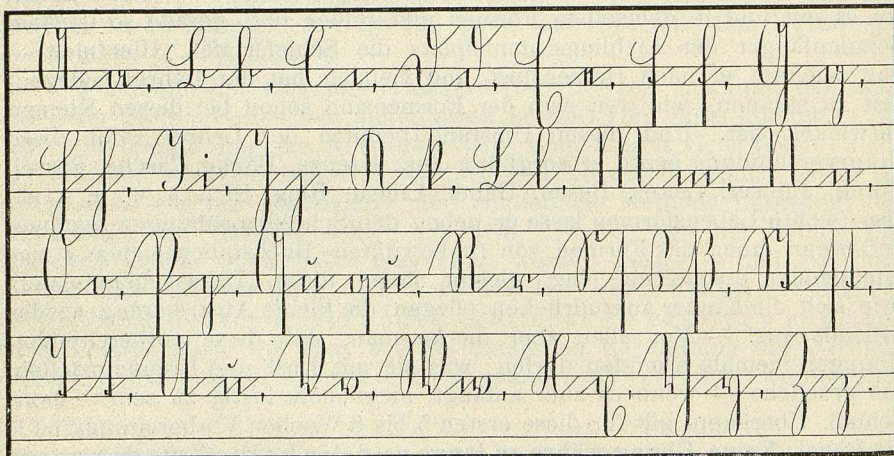 A a, B b, C c, D d, E e, F f, G g,
H h, I i, J j, K k, L l, M m, N n,
O o, P p, R r, S ſ s,
U u, V v, W w, X x, Y y, Z z